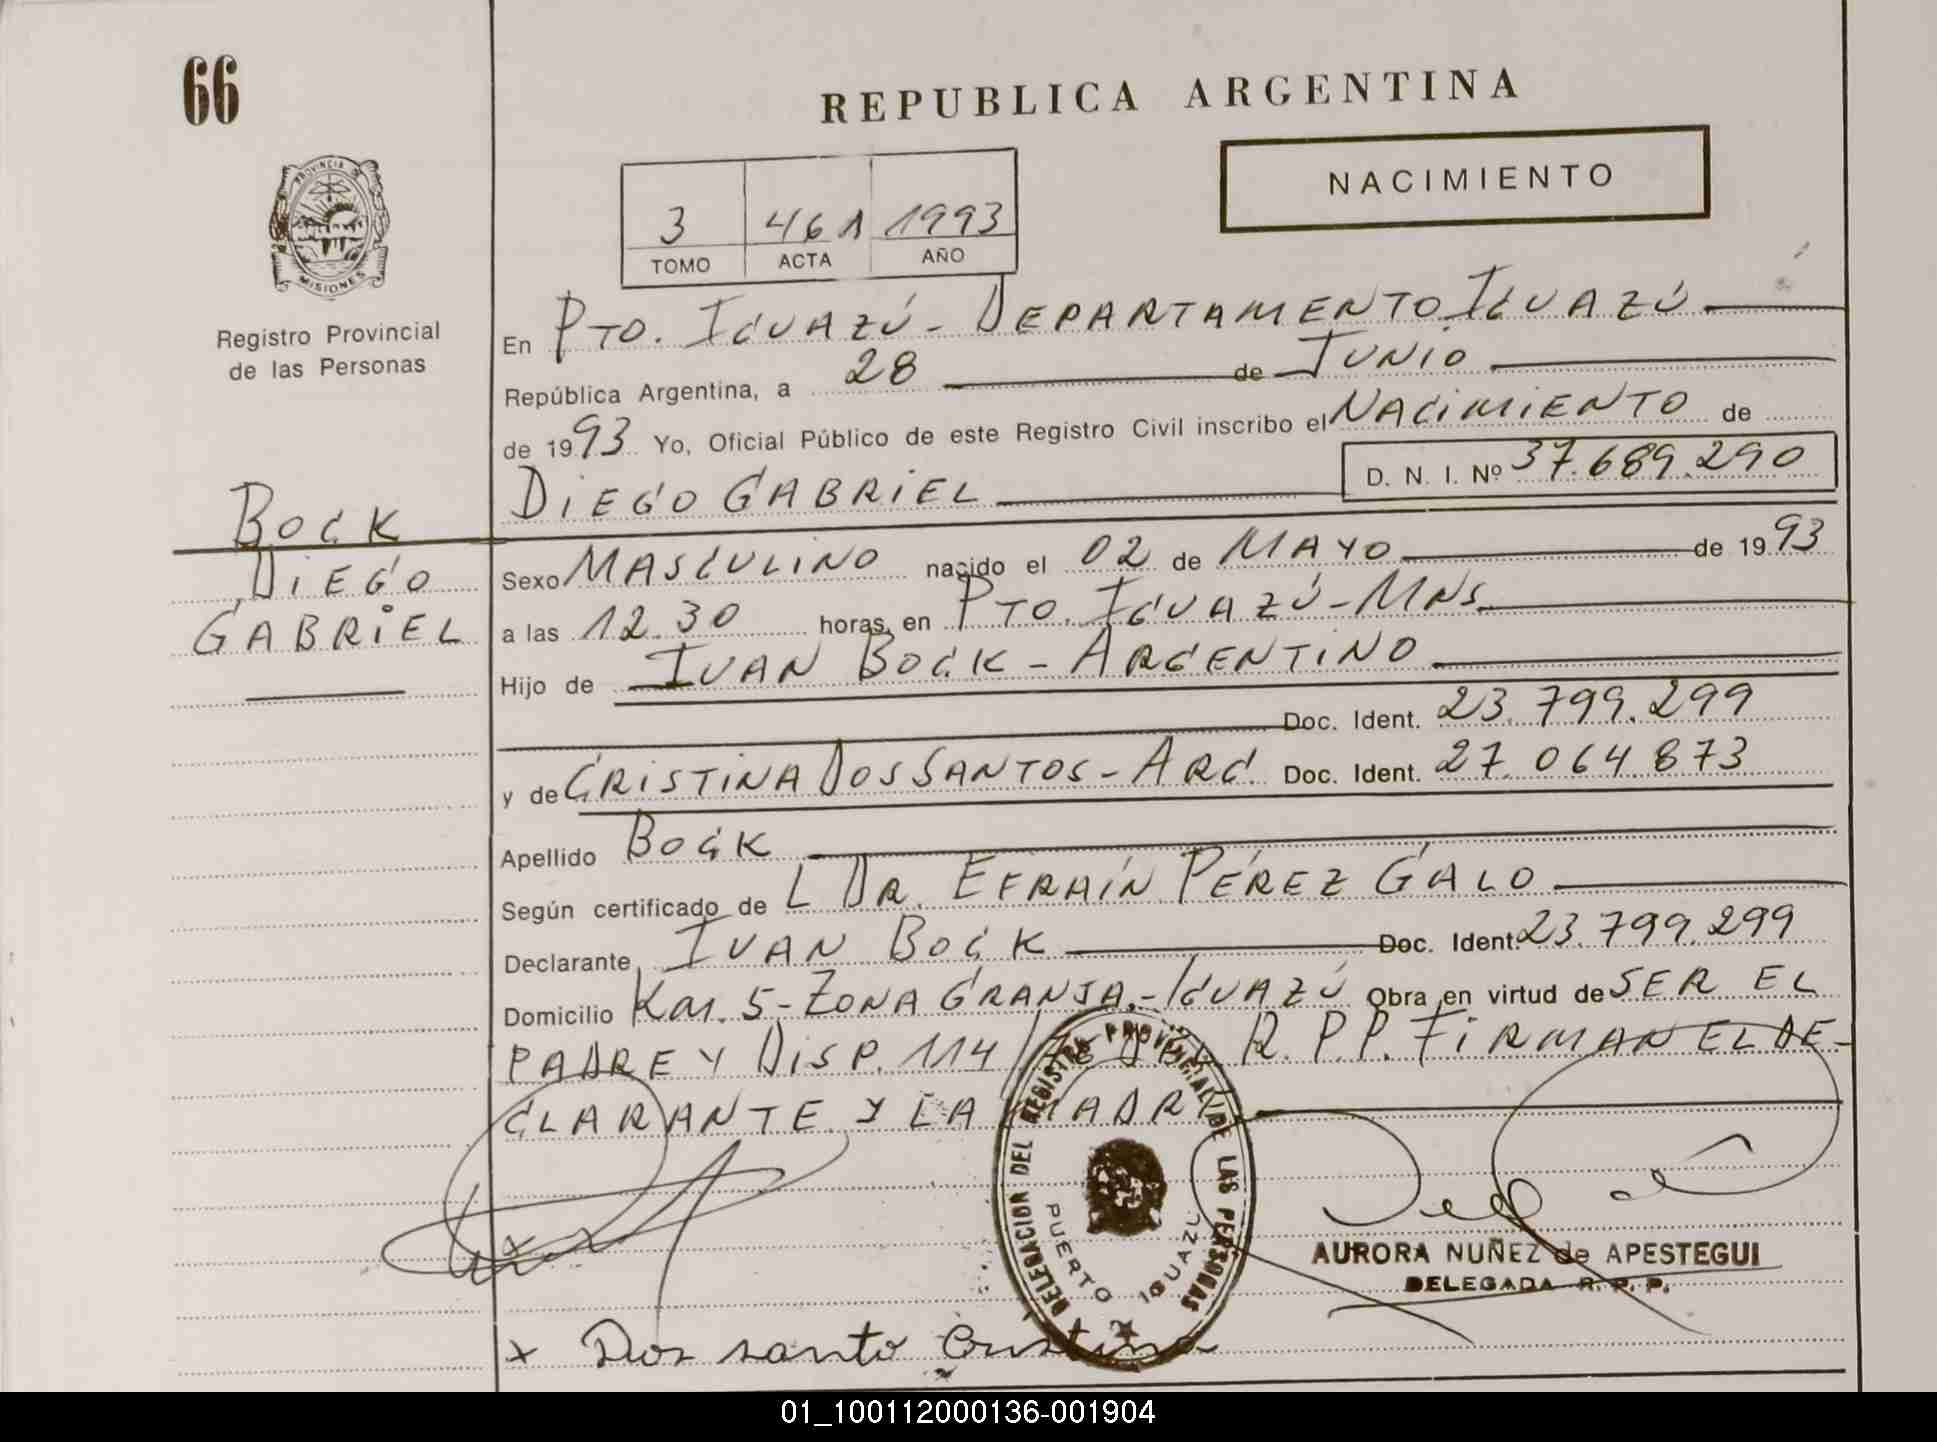 66
REPUBLICA ARGENTINA
NACIMIENTO
PROVINCIA DE
MISIONES
3 461 1993
TOMO ACTA AÑO
Registro Provincial
de las Personas
En PTO. IGUAZÚ - DEPARTAMENTO IGUAZÚ
República Argentina, a 28 de JUNIO
de 1993 Yo, Oficial Público de este Registro Civil inscribo el NACIMIENTO de
DIEGO GABRIEL D. N. I. Nº 37.689.290
BOCK
DIEGO
GABRIEL
Sexo MASCULINO nacido el 02 de MAYO de 1993
a las 12.30 horas, en PTO. IGUAZÚ - MNS.
Hijo de IVAN BOCK - ARGENTINO
Doc. Ident. 23.799.299
y de CRISTINA DOS SANTOS - ARG. Doc. Ident. 27.064.873
Apellido BOCK
Según certificado de L DR. EFRAÍN PÉREZ GALO
Declarante IVAN BOCK Doc. Ident. 23.799.299
Domicilio KM. 5 - ZONA GRANJA - IGUAZÚ Obra en virtud de SER EL
PADRE Y DISP. 114/76 R. P. P. FIRMAN EL DE-
CLARANTE Y LA MADRE
DELEGACION DEL REGISTRO PROVINCIAL DE LAS PERSONAS
PUERTO IGUAZU
AURORA NUÑEZ de APESTEGUI
DELEGADA R. P. P.
x
x Dos santo Cristina
01_100112000136-001904